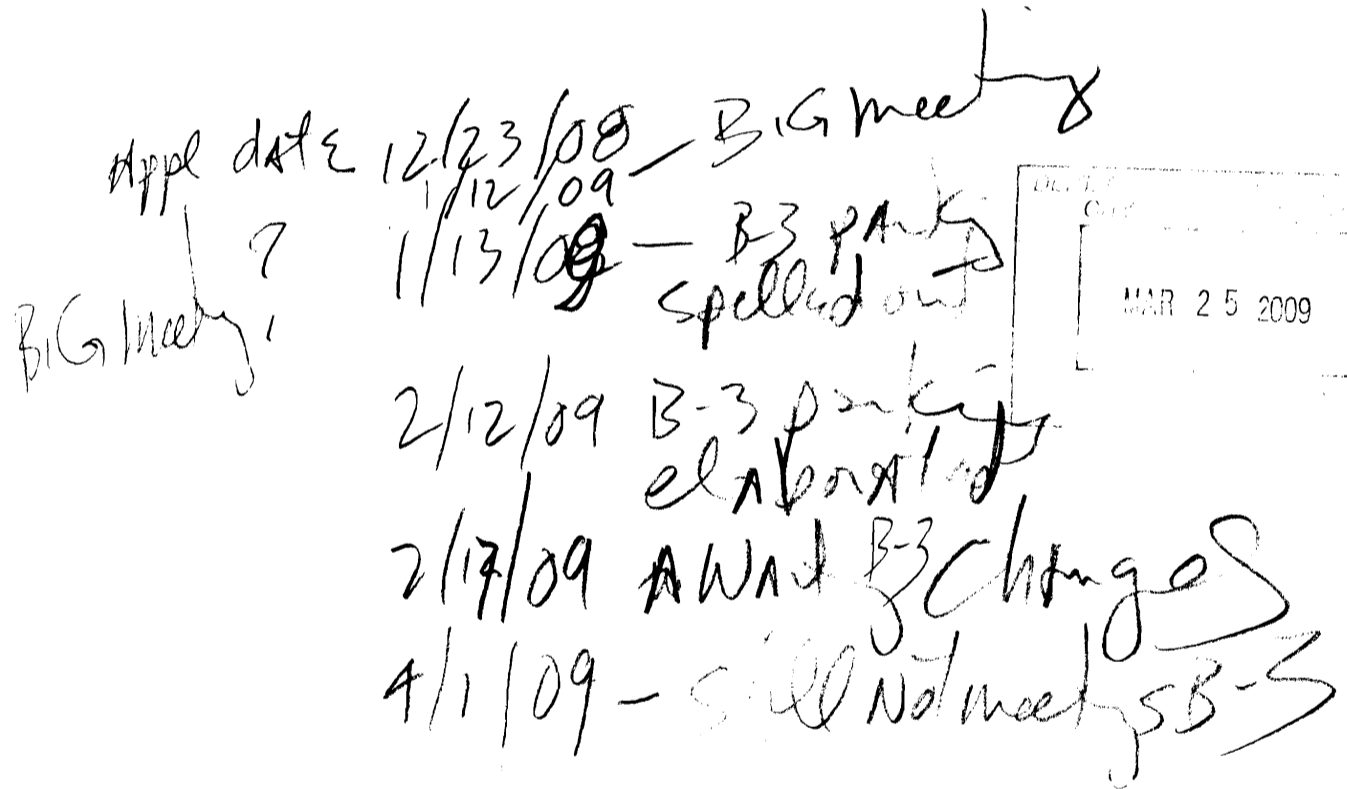 Appl date 12/23/08
1/12/09 — BiG meeting
BiG meeting?
1/13/09 — B-3 parking
spelled out
MAR 25 2009
2/12/09 B-3 parking
elaborated
2/17/09 AWAit B-3 Changes
4/1/09 - still Not meetings B-3